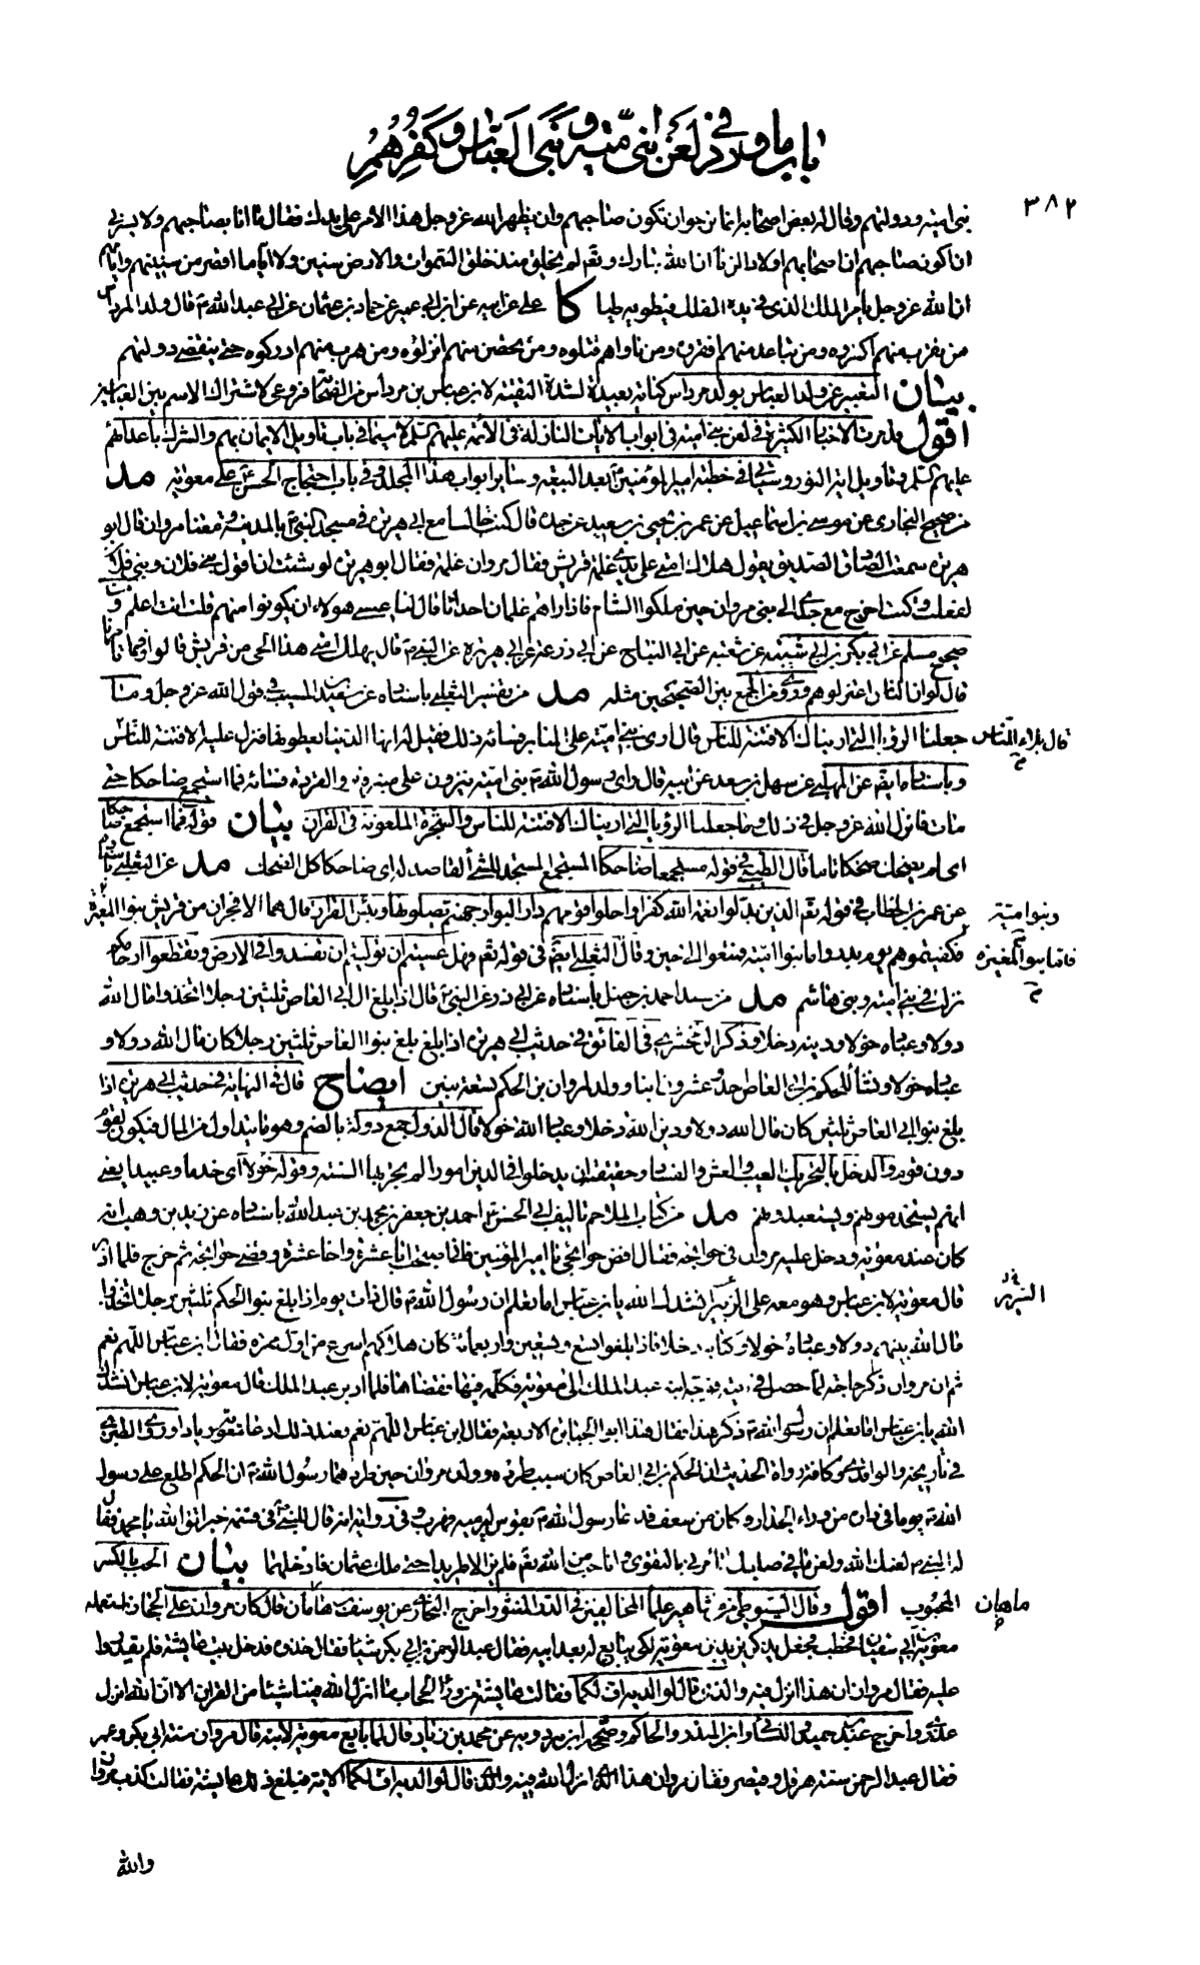 باب ما ورد في ذر لعن بني امية و بني العباس و كفرهم
٣٨٢
بني امية و دولتهم و قال له بعض اصحابه انما نرجو ان تكون صاحبهم و ان يظهر الله عز و جل هذا الامر على يديك فقال ما انا بصاحبهم و لا يسرني
ان اكون صاحبهم ان اصحابهم اولاد الزنا ان الله تبارك و تعم لم يخلق منذ خلق السموات و الارض سنين و لا اياما اقصر من سنينهم و ايامهم
ان الله عز و جل يأمر الملك الذي في يده الفلك فيطويه طيا كا علي عن ابيه عن ابن ابي عمير عن حماد بن عثمان عن ابي عبد الله ع قال ولد المرداس
من تقرب منهم اكفروه و من تباعد منهم افقروه و من ناواهم قتلوه و من تحصن منهم انزلوه و من هرب منهم ادركوه حتى ينقضي دولتهم
بيان التعبير عن ولد العباس بولد مرداس كناية بعيدة لشدة التقية لان عباس بن مرداس من الصحابة فروعي الاشتراك الاسم بين العباسين
اقول قد مرت الاخبار الكثيرة في لعن بني امية في ابواب الايات النازلة في الائمة عليهم السلم لا سيما في باب تاويل الايمان بهم و الشرك باعدائهم
عليهم السلم و تاويل اية النور و سياتي في خطبة امير المؤمنين ع بعد البيعة و ساير ابواب هذا المجلد و في باب احتجاج الحسن ع على معوية مد
من صحيح البخاري عن موسى بن اسماعيل عن عمر بن يحيى بن سعيد عن جده قال كنت جالسا مع ابي هريرة في مسجد النبي ص بالمدينة و معنا مروان قال ابو
هريرة سمعت الصادق الصديق يقول هلاك امتي على يدي غلمة قريش فقال مروان غلمة فقال ابو هريرة لو شئت ان اقول بني فلان و بني فلان
لفعلت و كنت اخرج مع جدي الى بني مروان حين ملكوا الشام فاذا راهم غلمان احداثا قال لنا عسى هولاء ان يكونوا منهم قلت انت اعلم و من
صحيح مسلم عن ابي بكر بن ابي شيبة عن شعبة عن ابي التياح عن ابي ذرعة عن ابي هريرة عن النبي ص قال يهلك امتي هذا الحي من قريش قالوا فما تامرنا
قال لو ان الناس اعتزلوهم و روى من الجمع بين الصحيحين مثله مد من تفسير الثعلبي باسناده عن سعيد بن المسيب في قول الله عز و جل و ما
جعلنا الرؤيا التي اريناك الا فتنة للناس قال ارى بني امية على المنابر فساءه ذلك فقيل له انها الدنيا يعطونها فنزل عليه الا فتنة للناس
قال بلاء للناس
و باسناده ايضم عن المهلبي عن سهل بن سعد عن ابيه قال راى رسول الله ص بني امية ينزون على منبره نزو القردة فساءه فما استجمع ضاحكا حتى
مات فانزل الله عز و جل في ذلك و ما جعلنا الرؤيا التي اريناك الا فتنة للناس و الشجرة الملعونة في القران بيان قوله فما استجمع ضاحكا
اي لم يضحك ضحكا تاما قال الطيبي في قوله مستجمعا ضاحكا المستجمع المستجد للشئ القاصد له اي ضاحكا كل الضحك مد عن الثعلبي باسناده
عن عمر بن الخطاب في قوله تعم الذين بدلوا نعمة الله كفرا و احلوا قومهم دار البوار جهنم يصلونها و بئس القرار قال هما الافجران من قريش بنو المغيرة
و بنو امية
فكفيتموهم يوم بدر و اما بنو امية فمتعوا الى حين و قال الثعلبي ايضم في قوله تعم فهل عسيتم ان توليتم ان تفسدوا في الارض و تقطعوا ارحامكم
فاما بنو المغيرة
نزلت في بني امية و بني هاشم مد من مسند احمد بن حنبل باسناده عن ابي ذر عن النبي ص قال اذا بلغ ال ابي العاص ثلثين رجلا اتخذوا مال الله
دولا و عباده خولا و دينه دخلا و ذكر الزمخشري في الفائق في حديث ابي هريرة اذا بلغ بنوا العاص ثلثين رجلا كان مال الله دولا و
عباده خولا و نشأ للحكم بن ابي العاص احد و عشرون ابنا و ولد لمروان بن الحكم تسعة بنين ايضاح قال في النهاية في حديث ابي هريرة اذا
بلغ بنو ابي العاص ثلثين كان مال الله دولا و دين الله دخلا و عباد الله خولا قال الدول جمع دولة بالضم و هو ما يتداول من المال فيكون لقوم
دون قوم و الدخل بالتحريك العيب و الغش و الفساد و حقيقته ان يدخلوا في الدين امورا لم يجز بها السنة و قوله خولا اي خدما و عبيدا يعني
انهم يستخدمونهم و يستعبدونهم مد من كتاب الملاحم تاليف ابي الحسن احمد بن جعفر بن محمد بن عبد الله باسناده عن زيد بن وهب انه
كان عند معوية و دخل عليه مروان في حوائجه فقال اقض حوائجي يا امير المؤمنين فاني اصبحت ابا عشرة و اخا عشرة و قضى حوائجه ثم خرج فلما ادبر
قال معوية لابن عباس و هو معه على السرير انشدك الله يابن عباس اما تعلم ان رسول الله ص قال ذات يوم اذا بلغ بنو الحكم ثلثين رجلا اتخذوا
السرير
مال الله بينهم دولا و عباده خولا و كتابه دخلا فاذا بلغوا تسع و تسعين و اربعمائة كان هلاكهم اسرع من اول تمرة فقال ابن عباس اللهم نعم
ثم ان مروان ذكر حاجة لما حصل في بيته فوجه ابنه عبد الملك الى معوية فكلمه فيها فقضاها فلما ادبر عبد الملك قال معوية لابن عباس انشدك
الله يابن عباس اما تعلم ان رسول الله ص ذكر هذا فقال هذا ابو الجبابرة الاربعة فقال ابن عباس اللهم نعم فعند ذلك ادعا معوية زيادا و روى الطبري
في تاريخه و الواقدي و كافة رواة الحديث ان الحكم بن ابي العاص كان سبب طرده و ولده مروان حين طردهما رسول الله ص ان الحكم اطلع على رسول
الله ص يوما في داره من وراء الجدار و كان من سعف فدعا رسول الله ص بقوس ليرميه فهرب و في رواية انه قال للنبي ص في قسمة خيبر اتق الله يا محمد فقال
له النبي ص لعنك الله و لعن ما في صلبك تأمرني بالتقوى و انا جئت من الله تعم فلم يزالا طريدا حتى ملك عثمان فادخلهما بيان الحب بالكسر
المحبوب اقول و قال السيوطي من مشاهير علماء المخالفين في الدر المنثور اخرج البخاري عن يوسف بن ماهان قال كان مروان على الحجاز استعمله
ماهان
معوية بن ابي سفيان فخطب فجعل يذكر يزيد بن معوية لكي يبايع له بعد ابيه فقال عبد الرحمن بن ابي بكر شيئا فقال خذوه فدخل بيت عايشة فلم يقدروا
عليه فقال مروان ان هذا انزل فيه و الذي قال لوالديه اف لكما فقالت عايشة من وراء الحجاب ما انزل الله فينا شيئا من القران الا ان الله انزل
عذري و اخرج عبد بن حميد و النسائي و ابن المنذر و الحاكم و صححه و ابن مردويه عن محمد بن زياد قال لما بايع معوية لابنه قال مروان سنة ابي بكر و عمر
فقال عبد الرحمن سنة هرقل و قيصر فقال مروان هذا الذي انزل الله فيه و الذي قال لوالديه اف لكما الاية فبلغ ذلك عايشة فقالت كذب مروان
والله